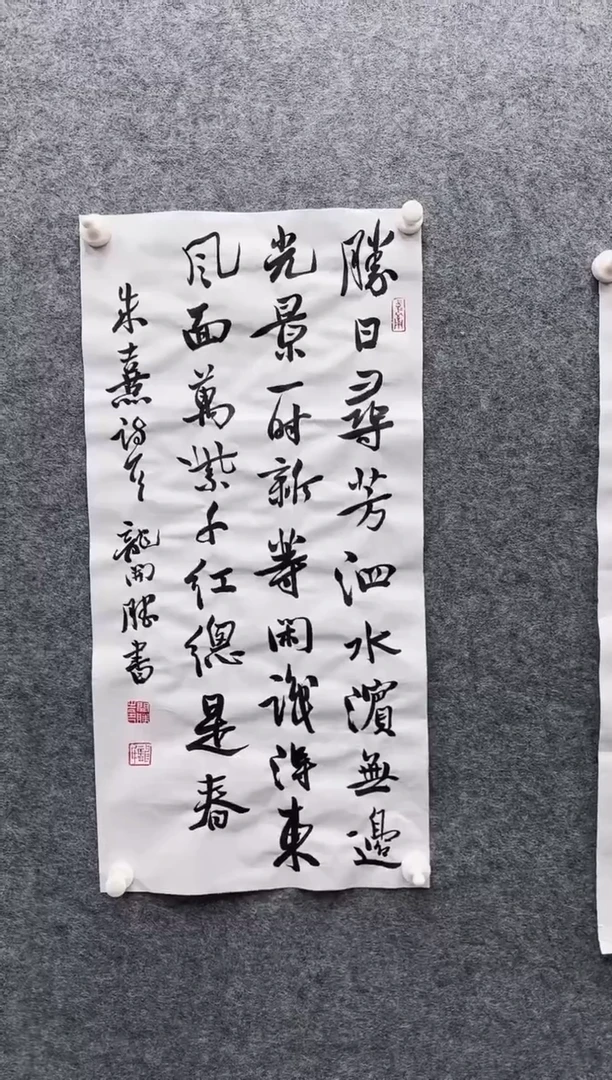 勝日尋芳泗水濱無邊
光景一时新等闲識得東
风面萬紫千红總是春
朱熹詩意 龍開勝書